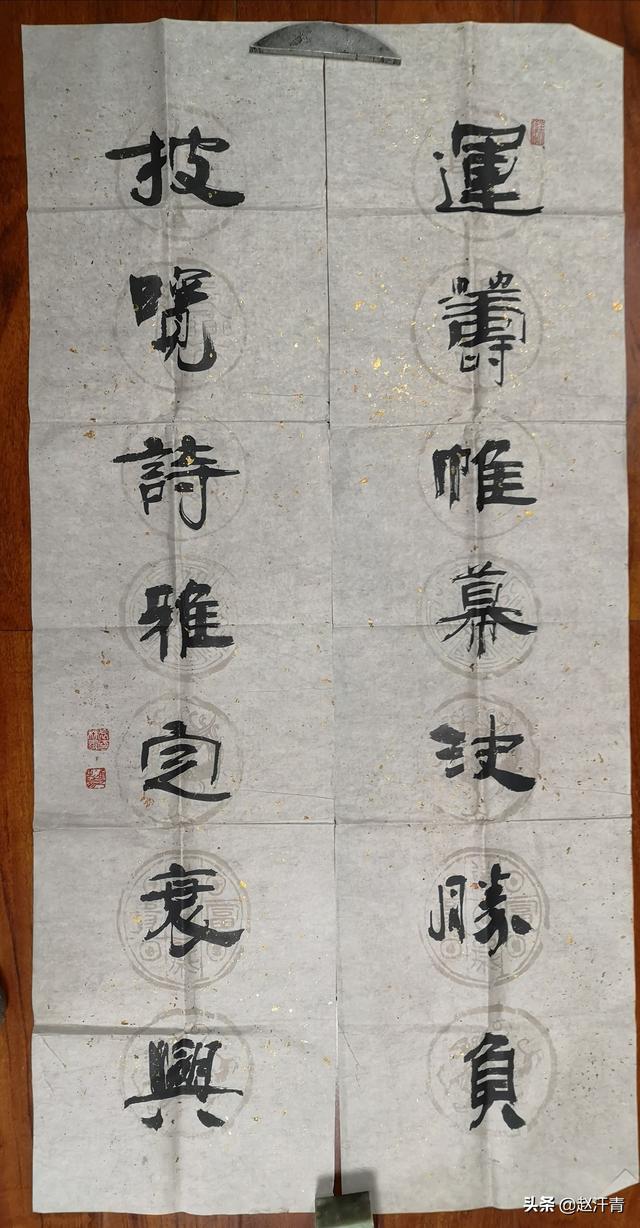 運籌帷幕決勝負
披覽詩雅定衰興
头条 @赵汗青